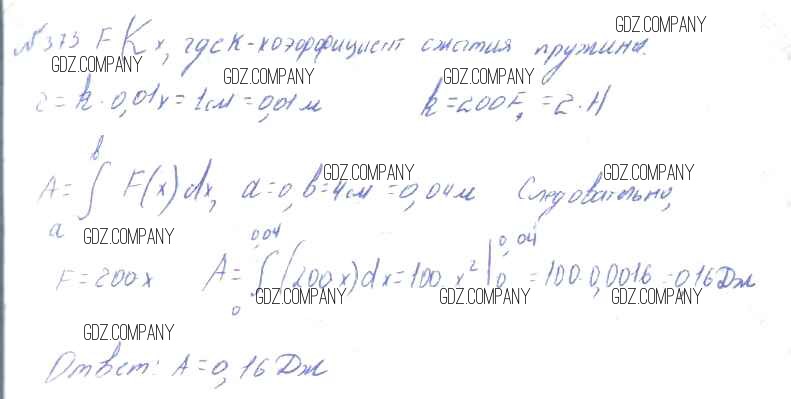 GDZ.COMPANY
№373 F K x, где k-коэффициент сжатия пружины.
GDZ.COMPANY GDZ.COMPANY GDZ.COMPANY
2 = k · 0,01 x = 1 см = 0,01 м k = 200 F, = 2 · H
GDZ.COMPANY GDZ.COMPANY
A = ∫ₐᵇ F(x) dx, a = 0, b = 4 см = 0,04 м Следовательно,
GDZ.COMPANY
F = 200x A = ∫₀^0,04 (200x) dx = 100 x² |₀^0,04 = 100 · 0,0016 = 0,16 Дж
GDZ.COMPANY GDZ.COMPANY GDZ.COMPANY
GDZ.COMPANY
Ответ: A = 0,16 Дж